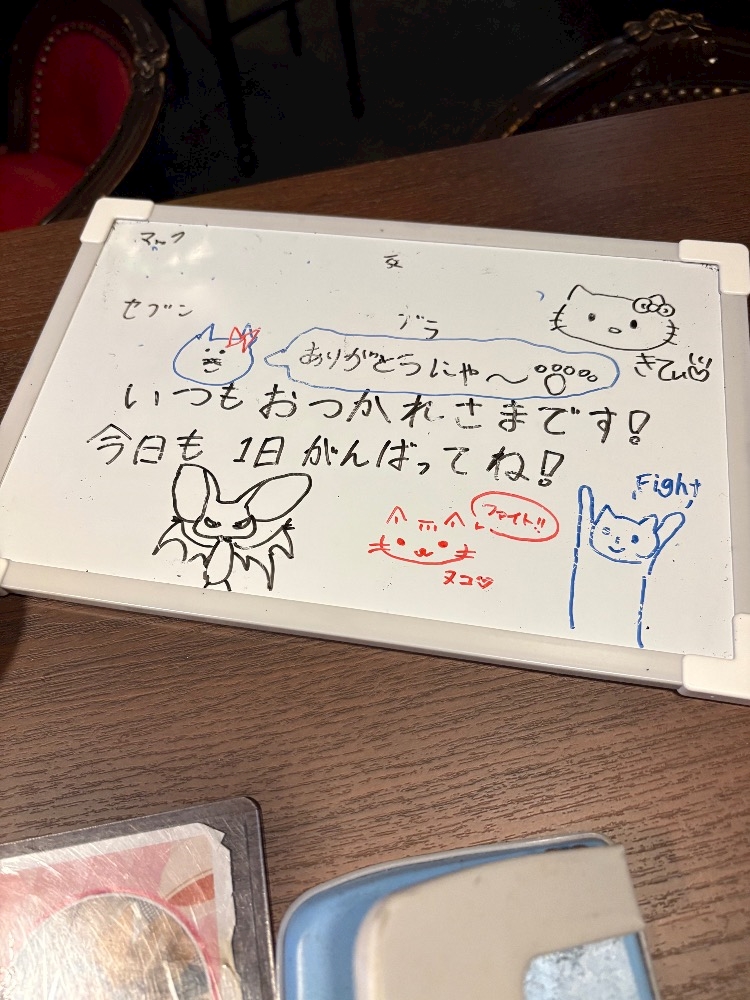 マック
セブン
ありがとうにゃ〜
きてぃ♡
いつもおつかれさまです!
今日も1日がんばってね!
Fight
ファイト!!
ヌコ♡